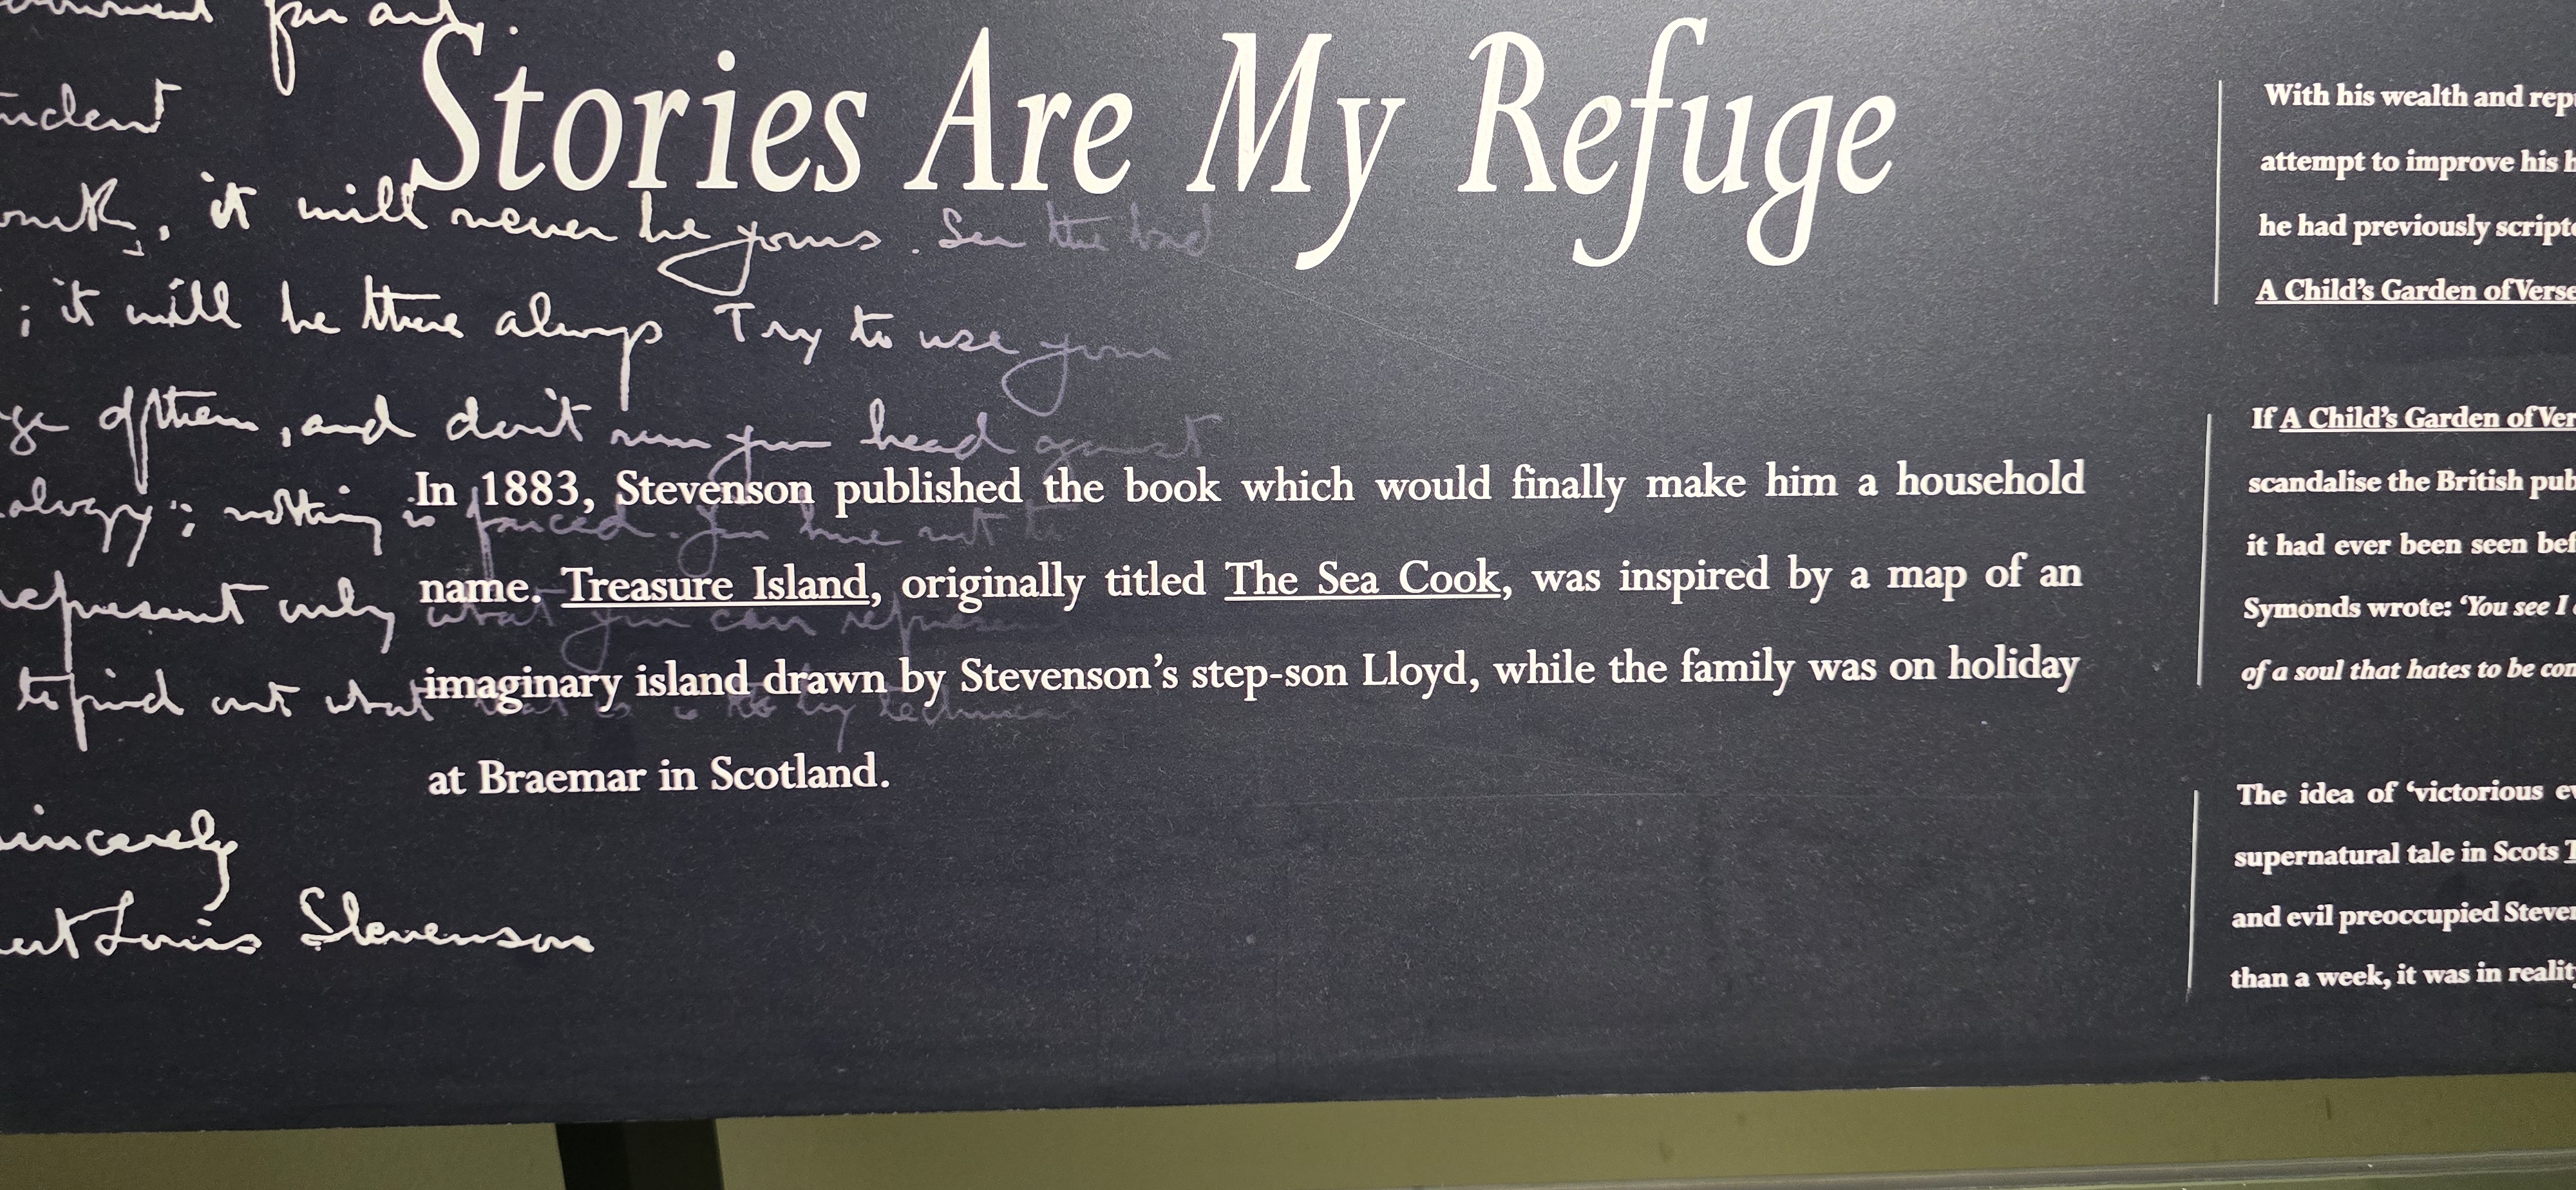 Stories Are My Refuge
it will never be yours. See the
; it will be there always Try to use your
of them, and don't run your head against
nothing is forced. You have not to
represent only what you can represent
to find out what that is is to try
Louis Stevenson
In 1883, Stevenson published the book which would finally make him a household
name. Treasure Island, originally titled The Sea Cook, was inspired by a map of an
imaginary island drawn by Stevenson's step-son Lloyd, while the family was on holiday
at Braemar in Scotland.
With his wealth and
attempt to improve his
he had previously
A Child's Garden of
If A Child's Garden of
scandalise the British
it had ever been seen
Symonds wrote: 'You see I
of a soul that hates to be
The idea of 'victorious
supernatural tale in Scots
and evil preoccupied
than a week, it was in